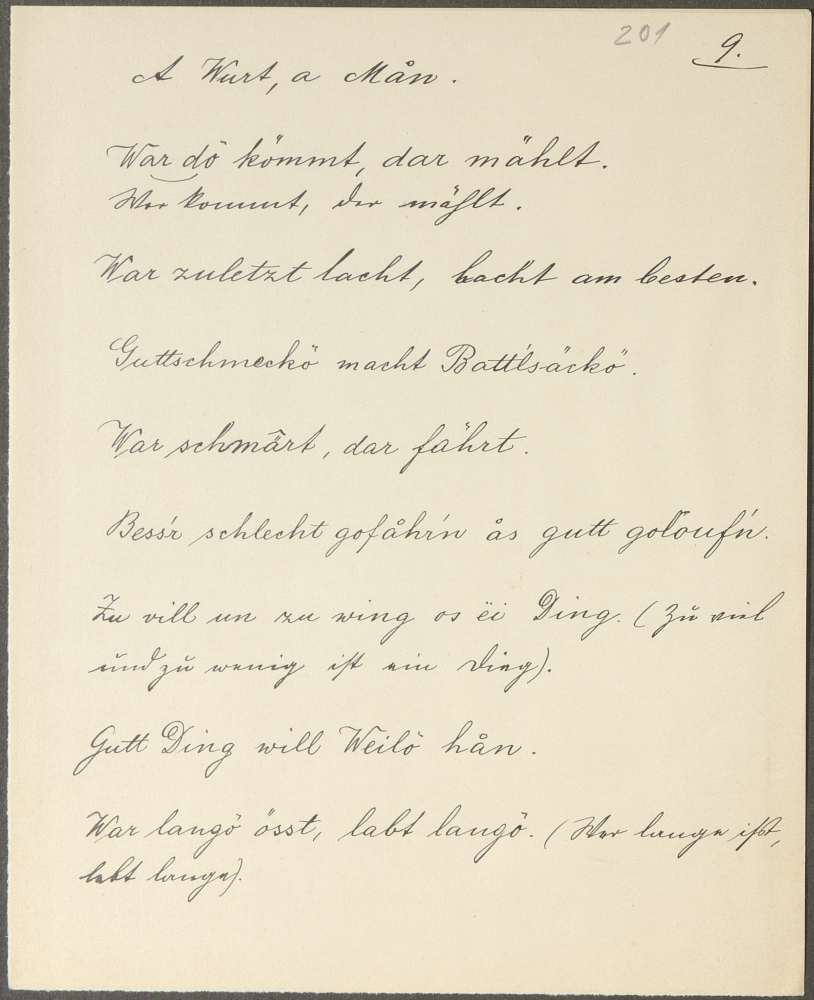 201
9.
A Wurt, a Mån.
War dö kömmt, dar mählt.
Wer kommt, der mählt.
War zuletzt lacht, lacht am besten.
Guttschmeckö macht Battlsäckö.
War schmârt, dar fährt.
Bess'r schlecht gofåhr'n ås gutt goloufn.
Zu vill un zu wing os ëi Ding. (Zu viel
und zu wenig ist ein Ding).
Gutt Ding will Weilö hån.
War langö össt, labt langö. (Wer lange ißt,
lebt lange).